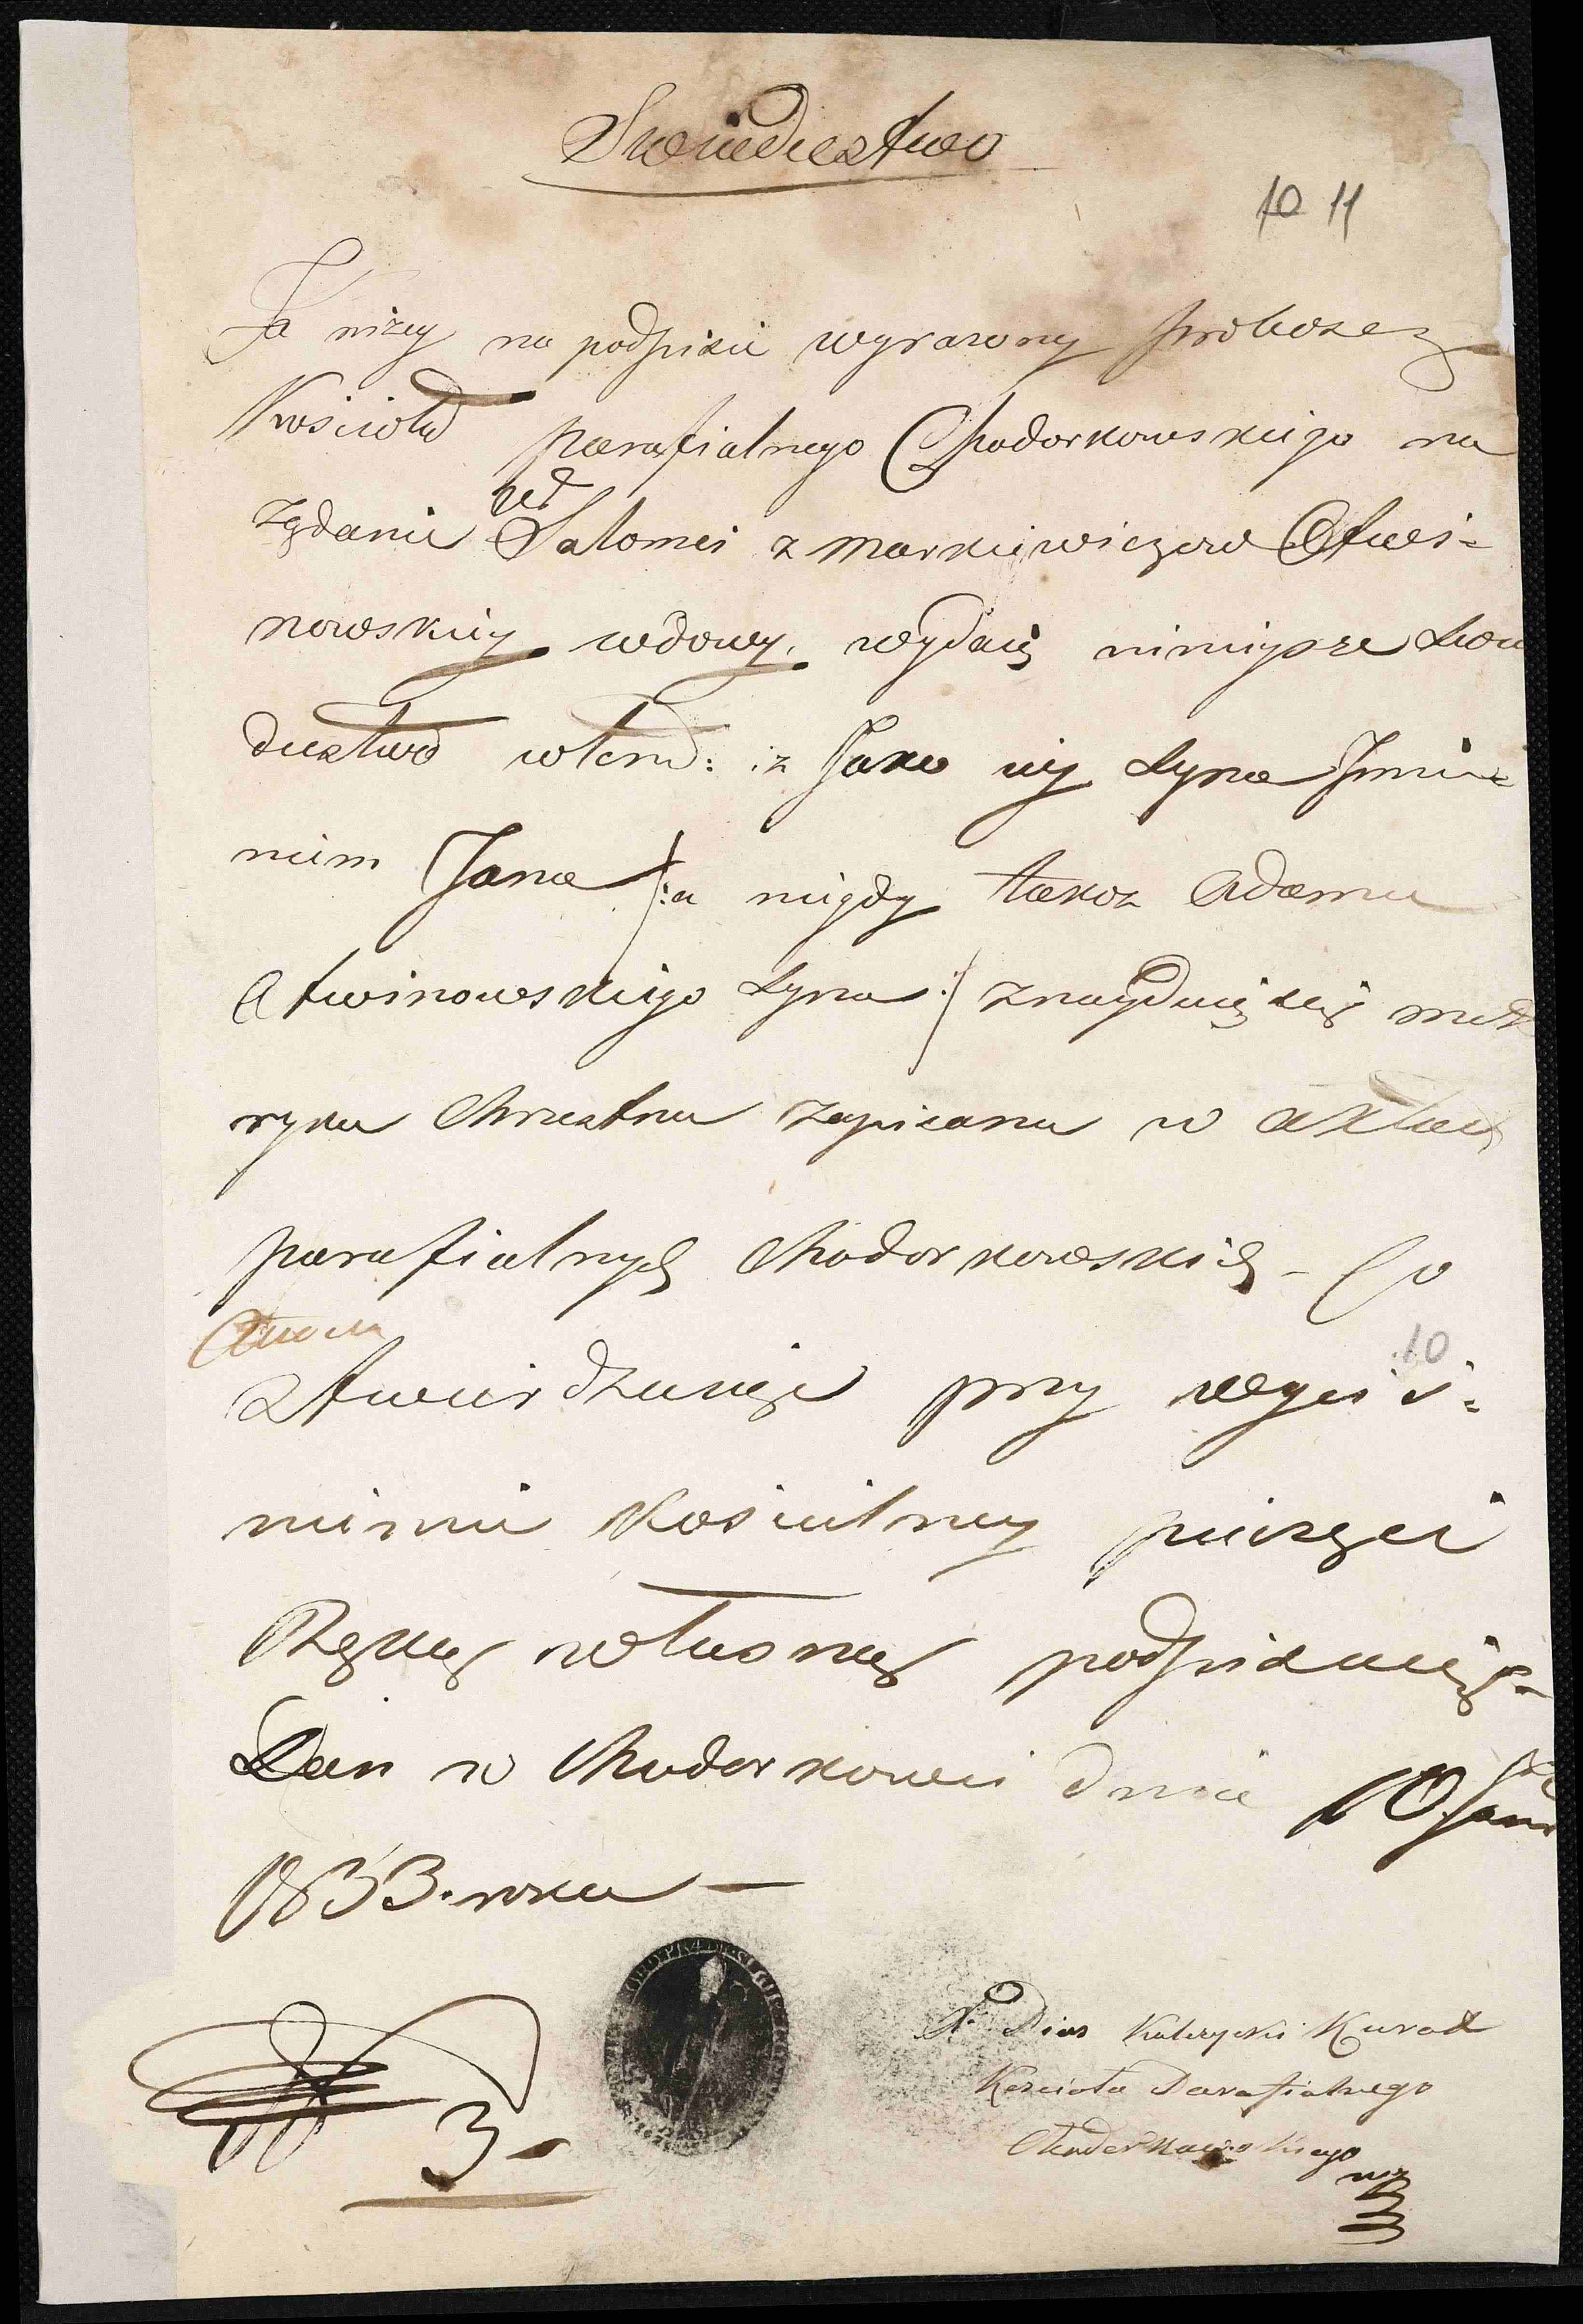 Swiadectwo
10 11
Ja niżey na podpisie wyrażony proboszcz
Kościoła parafialnego Chodorkowskiego na
żądanie Salomei z Markiewiczow Otwi=
nowskiey wdowy, wydaię ninieysze swia
dectwo w tem: iż Jako iey syna Jmie=
niem Jana /:a niegdy także Adama
Otwinowskiego syna:/ znayduie się met
ryka chrzestna zapisana w aktach
parafialnych Chodorkowskich - Co
10
ztwierdzaiąc przy wyciś=
nieniu Kościelney pieczęci
Ręką własną podpisuię-
Dan w Chodorkowie dnia 10 Janu
1833. roku —
3-
X. Pius Kurat
Kościoła Parafialnego
Chodorkowskiego
mp